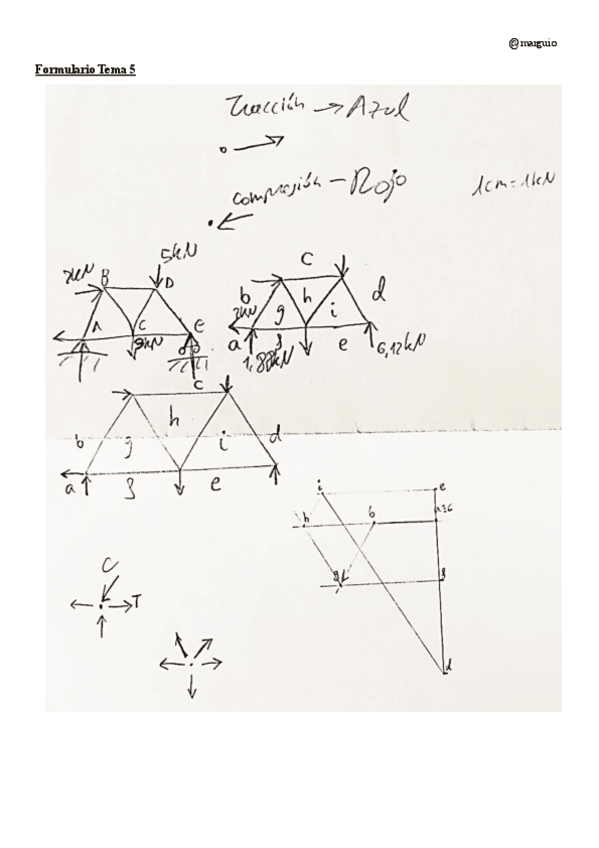 @marguio
Formulario Tema 5
Tracción → Azul
Compresión - Rojo
1cm = 1kN
5kN
2kN B D
A C E
C
b h d
2kN g i
a f e
1,88kN 6,12kN
c
h
b g i d
a f e
i e
h b a≡c
g f
d
C
T